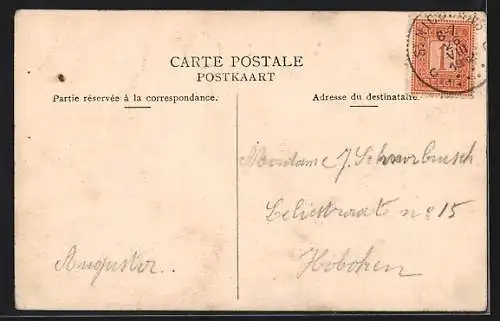 CARTE POSTALE
POSTKAART
Partie réservée à la correspondance.
Adresse du destinataire.
1
Madame J. Schnorbusch
Leliestraat no 15
Hoboken
Augustor..